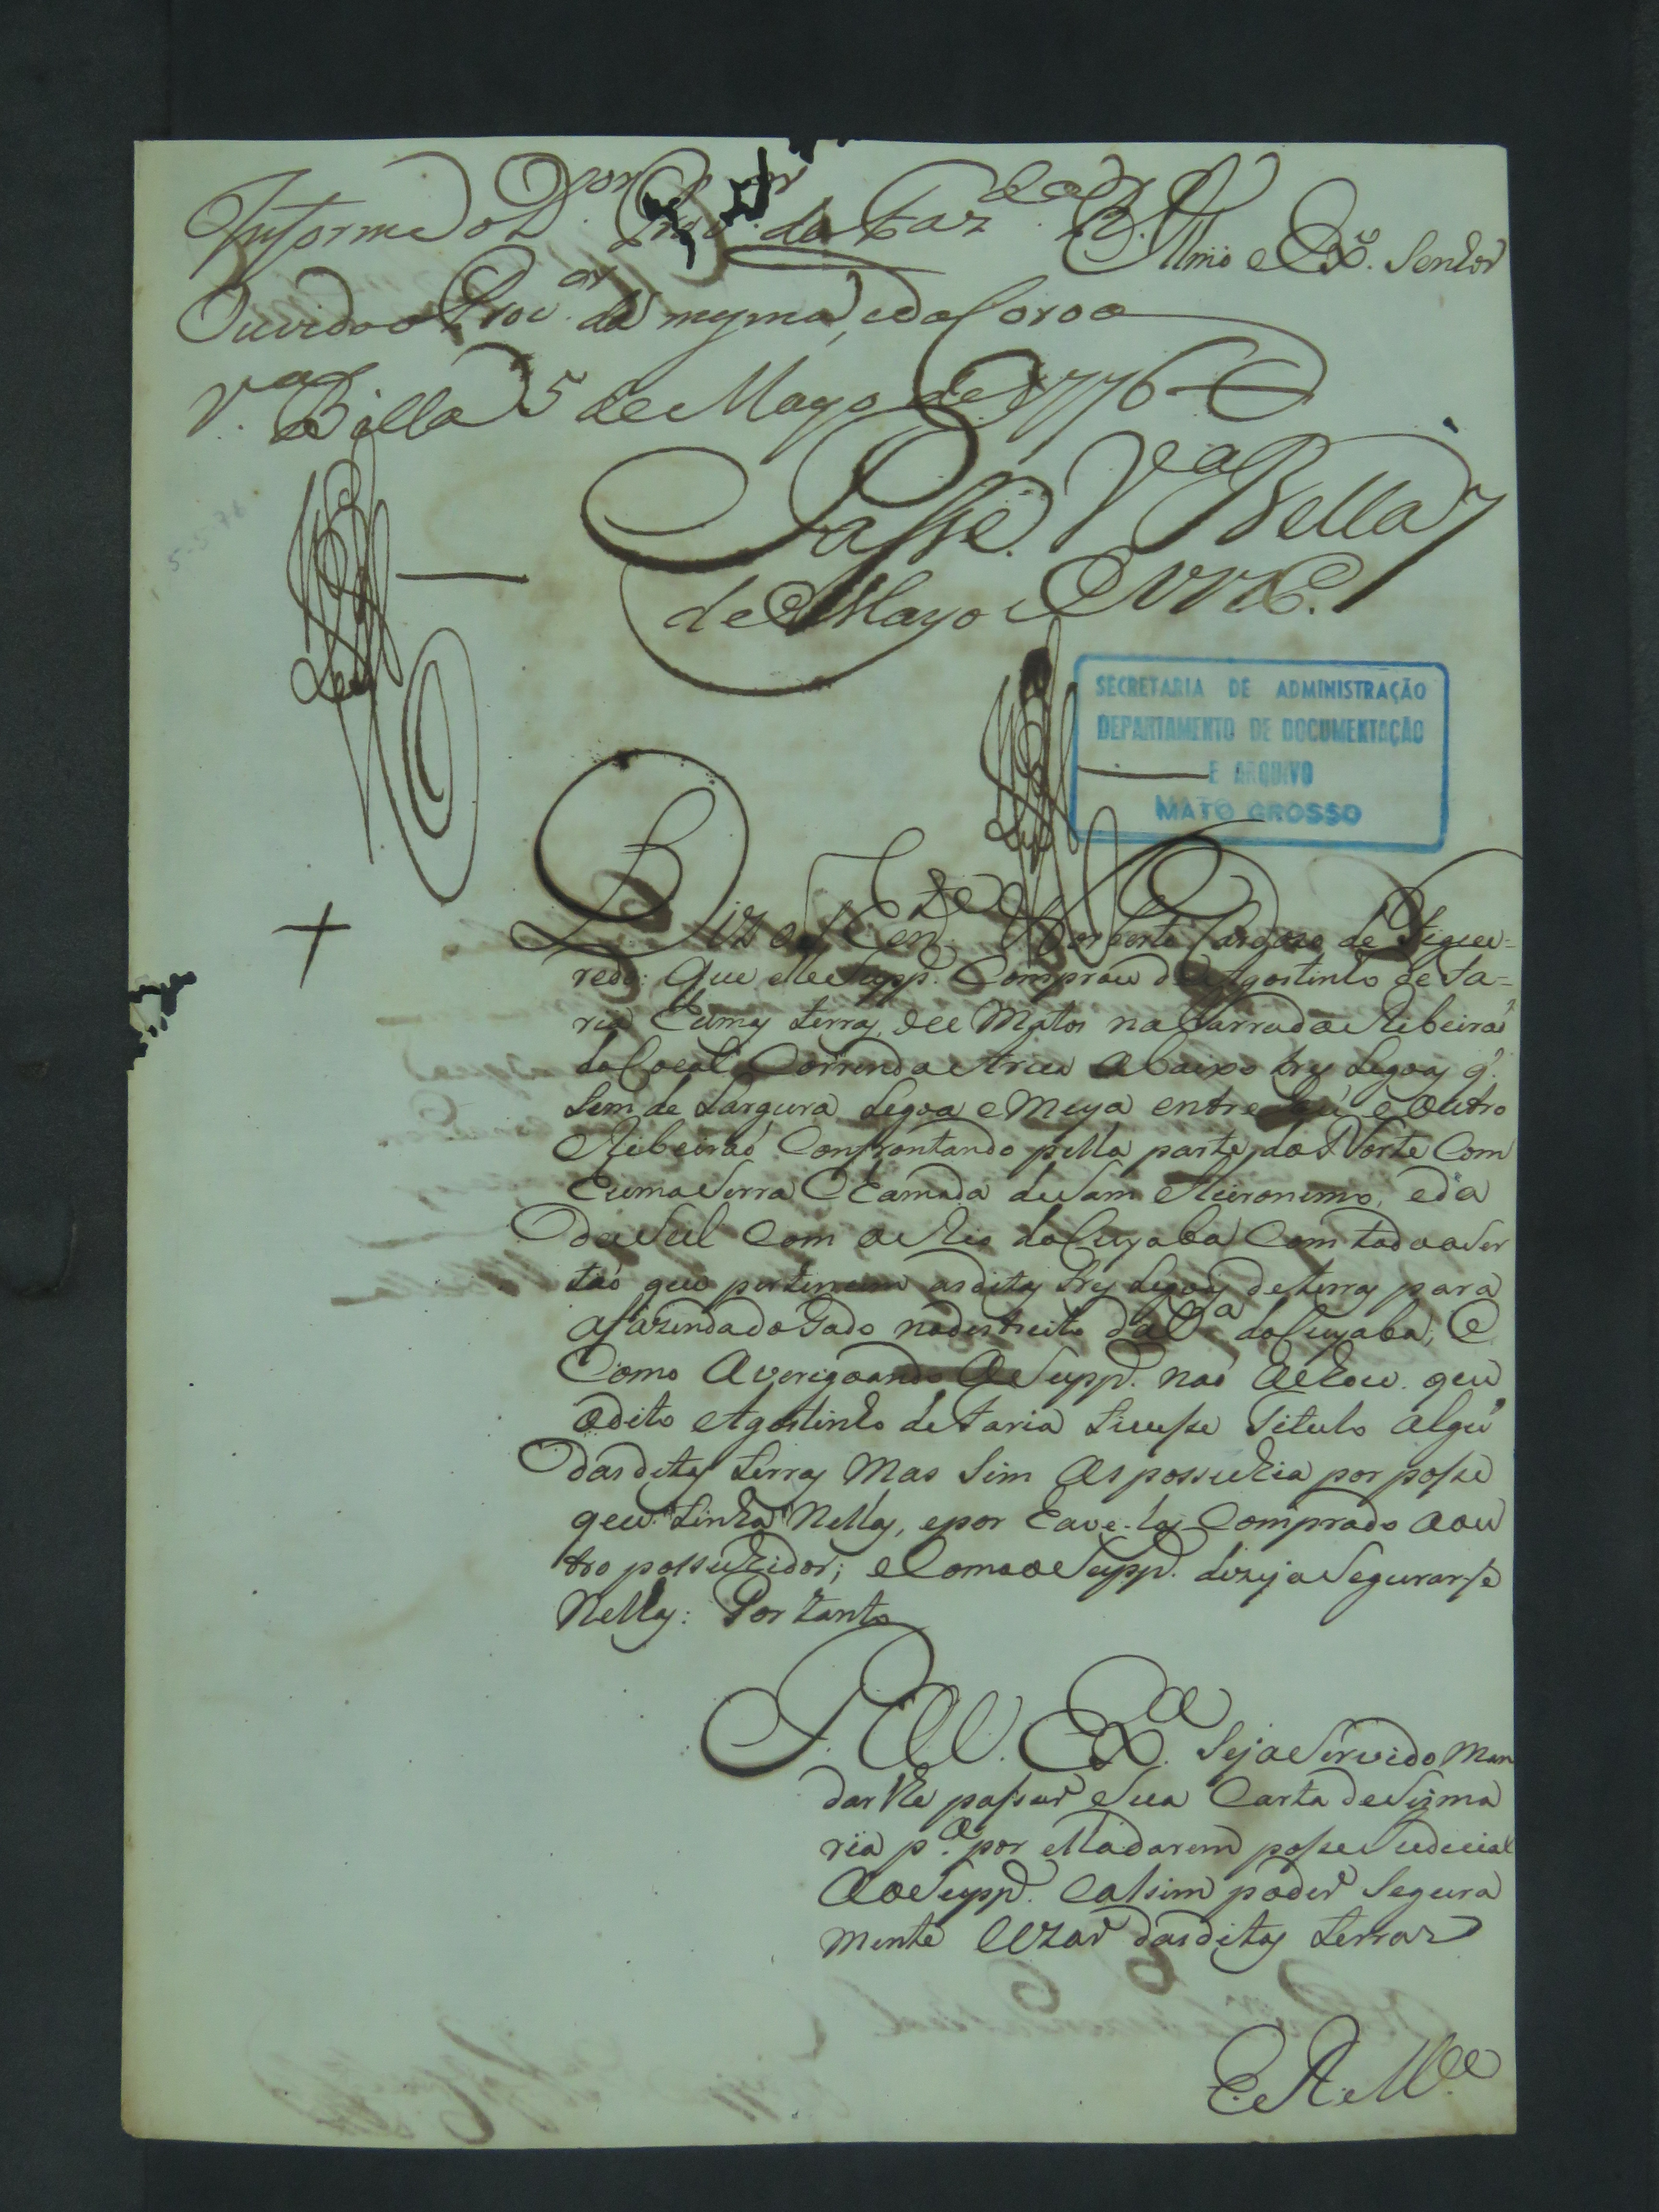 Informe o D.or Prov.or da Faz.da R.
Illmo e Ex.o Senhor
Ouvido o Proc.or da mesma, e da Coroa
V.a Bella 5 de Mayo de 1776
Passe. V.a Bella 7
de Mayo 1776.
5-5-76
SECRETARIA DE ADMINISTRAÇÃO
DEPARTAMENTO DE DOCUMENTAÇÃO
E ARQUIVO
MATO GROSSO
Diz o Ten.te Norberto Cardozo de Figuei=
redo: que elle Supp.e Comprou de Agostinho de Fa=
ria humas terras, de Matos na barra do Ribeiraõ
do Cocal Correndo Ariu abaixo tres Legoas q.
tem de Largura Legoa e Meya entre e outro
Ribeiraõ Confrontando pella parte do Norte Com
huma Serra Chamada de Sam Hieronimo, e da
do Sul Com o Rio do Cuyaba Com todo o Ser
taõ que pertencem as ditas tres Legoas de terras para
a fazenda do Gado no destricto da V.a do Cuyaba; e
Como Averigoando o Supp.e naõ achou que
o dito Agostinho de Faria tivesse titulo algũ
das ditas terras Mas Sim as possuhia por posse
que tinha Nellas, e por have-las Comprado a ou
tro possuhidor; e Como o Supp.e dezeja Segurar-se
Nellas: Por tanto
P. a V. Ex.ca Seja Servido Man
dar lhe passar Sua Carta de Sizma
ria p.a por ella darem posse Judicial
Ao Supp.e e assim poder Segura
mente Uzar das ditas terras
E. R. M.ce